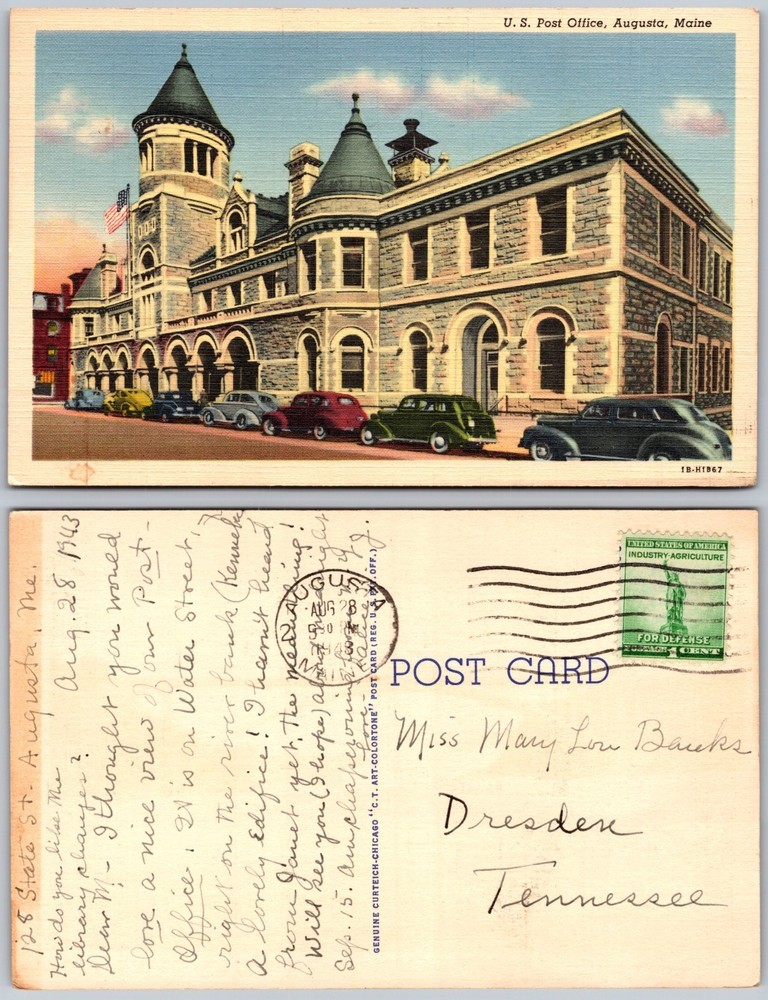 U. S. Post Office, Augusta, Maine
1B-H1867
128 State St. Augusta, Me.
Aug. 28 1943
How do you like the
library changes?
Dear M. - I thought you would
love a nice view of our Post-
Office! It is on Water Street,
right on the river bank (Kennebec
A lovely edifice! I haven't heard
from Janet yet, the
Will see you (I hope) about midnight
Sep. 15. Am chaperoning
Love
AUGUSTA
AUG 28
GENUINE CURTEICH-CHICAGO "C.T. ART-COLORTONE" POST CARD (REG. U.S. PAT. OFF.)
UNITED STATES OF AMERICA
INDUSTRY-AGRICULTURE
FOR DEFENSE
POSTAGE 1 CENT
POST CARD
Miss Mary Lou Banks
Dresden
Tennessee